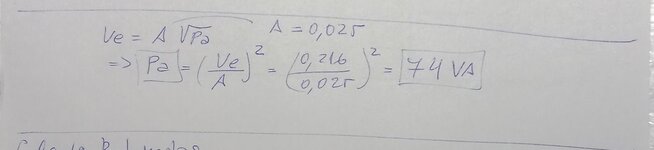 Ve = A √Pa A = 0,025
=> Pa = (Ve/A)² = (0,216/0,025)² = 74 VA